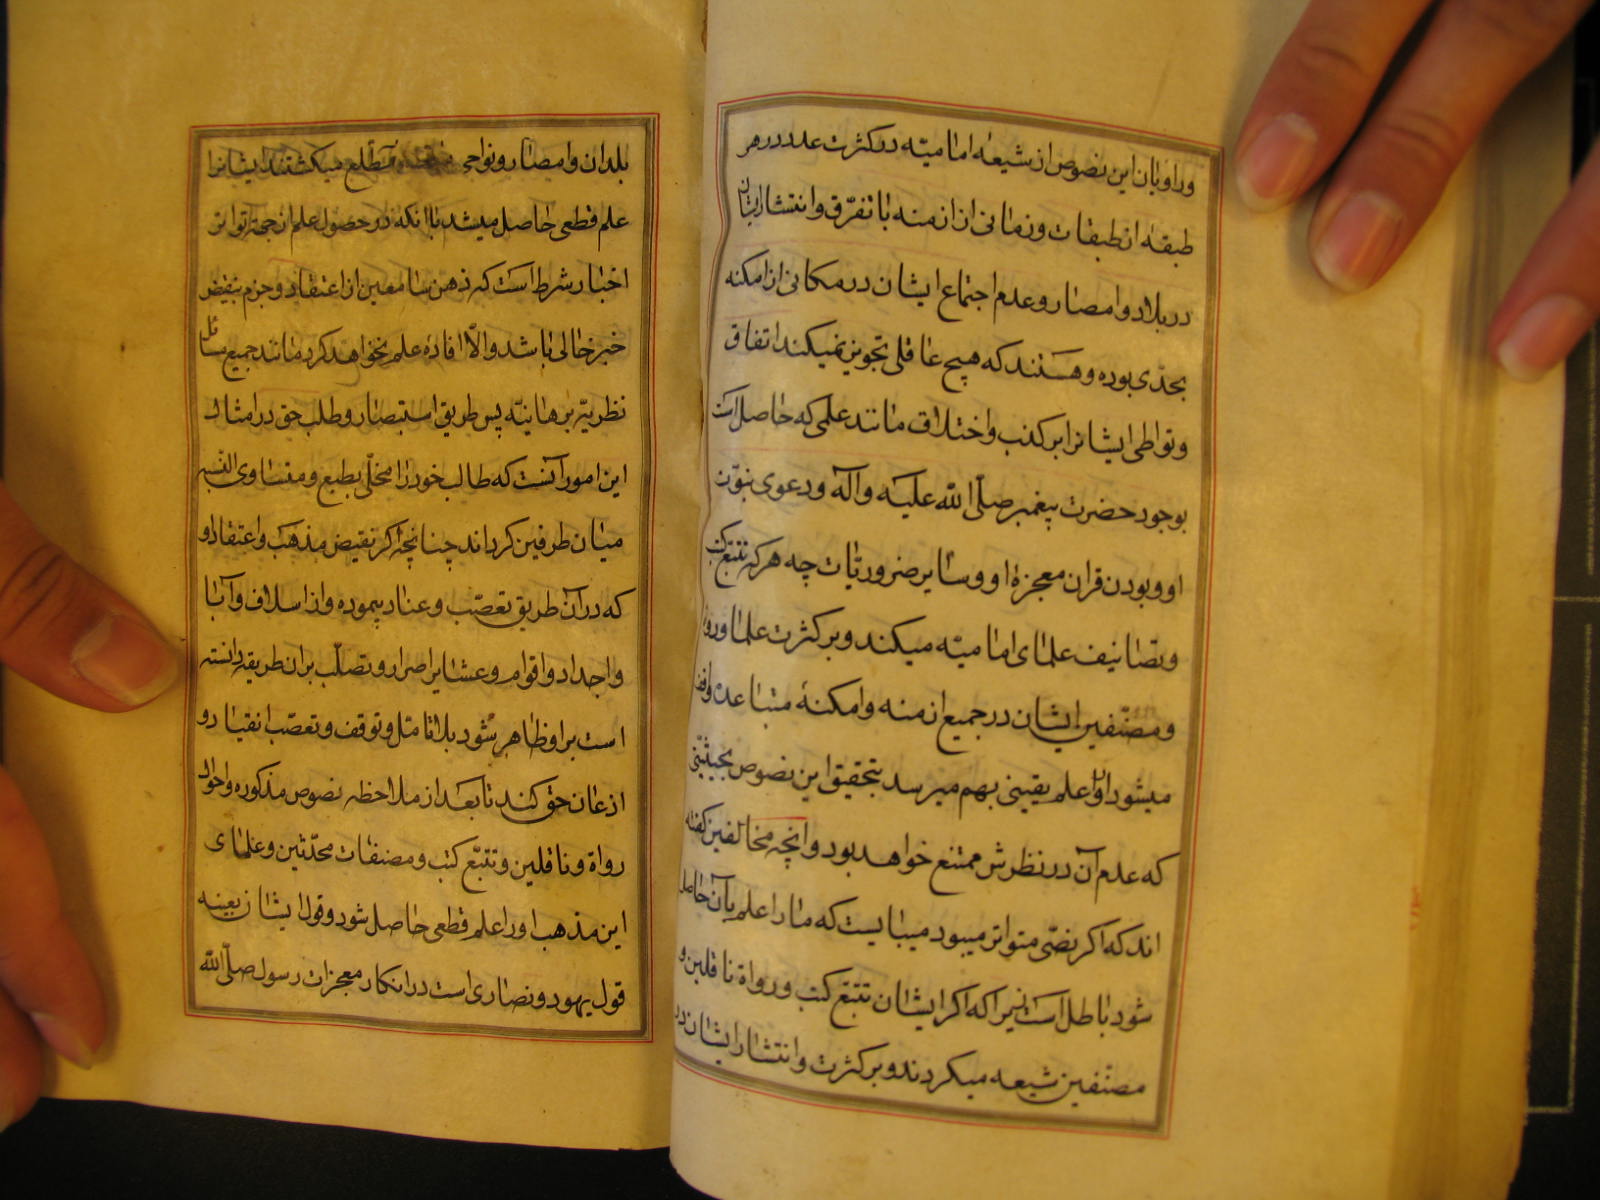 وراویان این نصوص از شیعهٔ امامیّه در کثرت عدد در هر
طبقه از طبقات و زمانی از ازمنه با تفرّق و انتشار ایشان
در بلاد و امصار و عدم اجتماع ایشان در مکانی از امکنه
بحدّی بوده و هستند که هیچ عاقلی تجویز نمیکند اتفاق
و تواطی ایشانرا بر کذب و اختلاق مانند علمی که حاصل است
بوجود حضرت پیغمبر صلّی الله علیه وآله و دعوی نبوّت
او و بودن قران معجزهٔ او و سایر ضروریّات چه هرکه تتبّع کتب
و تصانیف علمای امامیّه میکند و بر کثرت علما و رواة
و مصنّفین ایشان در جمیع ازمنه و امکنهٔ متباعده واقف
میشود او را علم یقینی بهم میرسد بتحقیق این نصوص بحیثیّتی
که عدم آن در نظرش ممتنع خواهد بود و انچه مخالفین گفته
اند که اکر نصّی متواتر میبود میبایست که ما را علم بآن حاصل
شود باطل است زیرا که اکر ایشان تتبّع کتب و رواة ناقلین و
مصنّفین شیعه میکردند و بر کثرت و انتشار ایشان در
بلدان و امصار و نواحی مطّلع میکشتند ایشانرا
علم قطعی حاصل میشد با انکه در حصول علم از جهة تواتر
اخبار شرط است که ذهن سامعین از اعتقاد و جزم بنقیض
خبر خالی باشد و الّا افادهٔ علم نخواهد کرد مانند جمیع مسائل
نظریّه برهانیّه پس طریق استبصار و طلب حق در امثال
این امور آنست که طالب خود را مخلّی بطبع و متساوی النّسبه
میان طرفین کرداند چنانچه اکر نقیض مذهب و اعتقاد او
که در آن طریق تعصّب و عناد پیموده و از اسلاف و آبا
و اجداد و اقوام و عشایر اصرار و تصلّب بران طریقه دانسته
است بر او ظاهر شود بلا تامّل و توقف و تعصّب انقیاد و
اذعان حق کند تا بعد از ملاحظه نصوص مذکوره و احوال
رواة و ناقلین و تتبّع کتب و مصنفات محدّثین و علمای
این مذهب او را علم قطعی حاصل شود و قول ایشان بعینه
قول یهود و نصاری است در انکار معجزات رسول صلّی الله